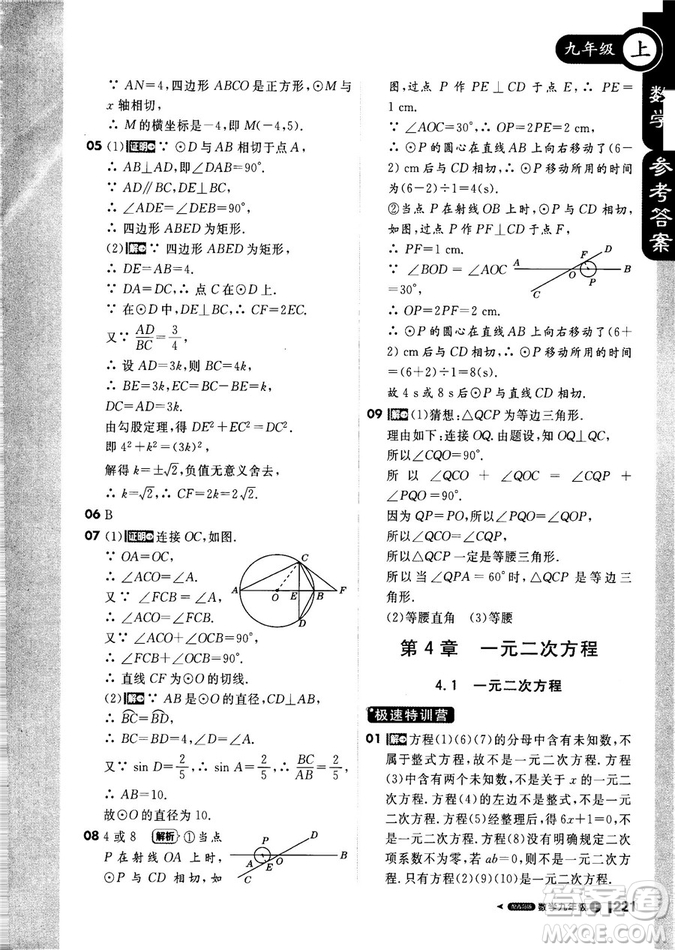 九年级 上
数学
参考答案
∵ AN=4, 四边形 ABCO 是正方形, ⊙M 与
x 轴相切,
∴ M 的横坐标是-4, 即 M(-4,5).
05 (1)证明 ∵ ⊙D 与 AB 相切于点 A,
∴ AB⊥AD, ∴ ∠BAD=90°.
∵ AD∥BC, DE⊥BC,
∴ ∠ADE=90°, ∠DEB=90°.
∴ 四边形 ABED 为矩形.
(2)解 ∵ 四边形 ABED 为矩形,
∴ DE=AB=4.
∵ DA=DC, ∴ 点 C 在⊙D 上.
∵ 在⊙D 中, DE⊥CF, ∴ CF=2EC.
又∵ AD/BC=3/4,
∴ 设 AD=3k, 则 BC=4k.
∴ BE=3k, EC=BC-BE=4k-3k=k,
DC=AD=3k.
由勾股定理, 得 DE²+EC²=DC²,
即 4²+k²=(3k)².
解得 k=±√2, 负值无意义舍去,
∴ k=√2, ∴ CF=2EC=2√2.
06 B
07 (1)证明 连接 OC, 如图.
∵ OA=OC,
∴ ∠ACO=∠A.
又∵ ∠FCB=∠A,
∴ ∠ACO=∠FCB.
又∵ AB 是⊙O 的直径,
∴ ∠ACO+∠OCB=90°.
∴ ∠FCB+∠OCB=90°.
∴ 直线 CF 为⊙O 的切线.
A O E B F C D
(2)解 ∵ AB 是⊙O 的直径, CD⊥AB,
∴ BC=BD.
∴ ∠BCD=∠A, ∠ACB=90°.
又∵ sin D=2/5, ∴ sin A=BC/AB=4/AB=2/5,
∴ AB=10.
故⊙O 的直径为 10.
08 4 或 8 解析 ①当点
P 在射线 OA 上时,
P D A E O B C
图, 过点 P 作 PE⊥CD 于点 E, ∴ PE=
1 cm.
∵ ∠AOC=30°, ∴ OP=2PE=2 cm,
∴ ⊙P 的圆心在直线 AB 上向右移动了(6-
2)cm, ∴ ⊙P 移动所用的时间
为(6-2)÷1=4(s).
②当点 P 在射线 OB 上时,
∴ PF=1 cm.
∵ ∠BOD=∠AOC
=30°,
∴ OP=2PF=2 cm.
∴ ⊙P 的圆心在直线 AB 上向右移动了(6+
2)cm, ∴ ⊙P 移动所用的时间
=(6+2)÷1=8(s).
故 4 s 或 8 s 后⊙P 与直线 CD 相切.
F D A O P B C
09 解 (1)猜想: △QCP 为等边三角形.
理由如下: 连接 OQ. 由题设, 知 OQ⊥CQ,
所以∠CQO=90°.
所以 ∠QCO + ∠QOC = ∠CQP +
∠PQO=90°.
因为 QP=PO, 所以∠PQO=∠QOP.
所以∠QCO=∠CQP.
所以△QCP 是等腰三角形.
所以当∠QPA=60°时, △QCP 是等边三
角形.
(2)等腰直角 (3)等腰
第 4 章 一元二次方程
4.1 一元二次方程
极速特训营
01 解 方程(1)(6)(7)的分母中含有未知数, 不
属于整式方程, 故不是一元二次方程. 方程
(3)中含有两个未知数, 不是关于 x 的一元
二次方程, 方程(4)的左边不是整式, 不是一
元二次方程. 方程(5)经过整理后得 6x+1=0, 不
是一元二次方程. 方程(8)没有明确规定二次
项系数不为零, 若 ab=0, 则不是一元二次
方程. 只有方程(2)(9)(10)是一元二次方程.
数学九年级 上 221